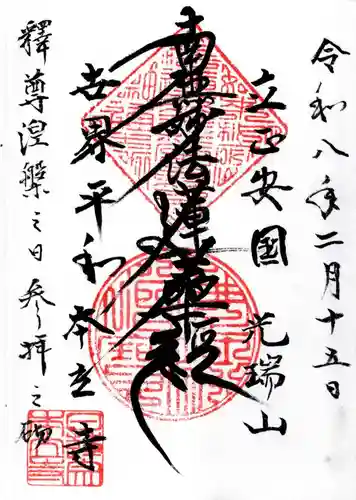 令和八年二月十五日
立正安国 光瑞山
南無妙法蓮華経
世界平和 本立寺
釋尊涅槃之日 参り拝之砌